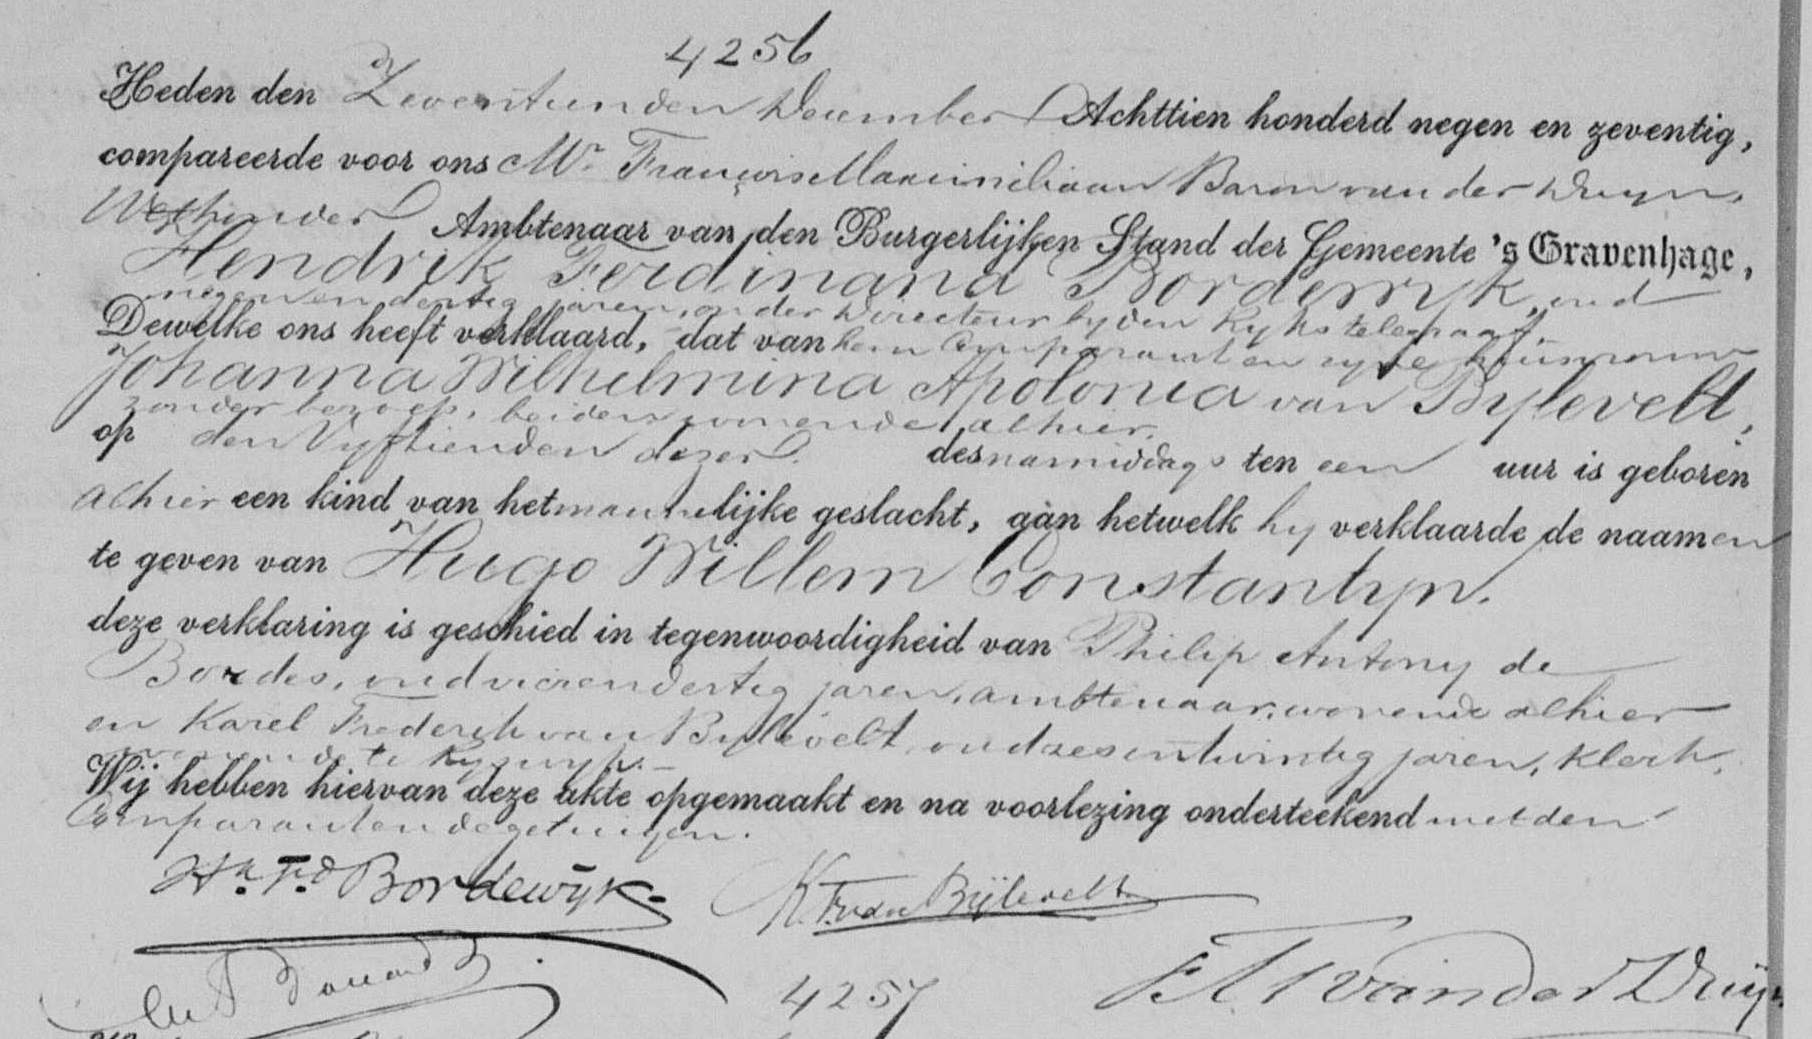 4256
Heden den Zeventienden December Achttien honderd negen en zeventig,
compareerde voor ons Mr. François Maximiliaan Baron van der Duyn,
Wethouder Ambtenaar van den Burgerlijken Stand der Gemeente 's Gravenhage,
Hendrik Ferdinand Bordewyk, oud
negenendertig jaren, onder Directeur by den Ryks telegraaf,
Dewelke ons heeft verklaard, dat van hem Comparant en zyne huisvrouw
Johanna Wilhelmina Apolonia van Bylevelt,
zonder beroep, beiden wonende alhier,
op den Vyftienden dezer des namiddags ten een uur is geboren
alhier een kind van het mannelijke geslacht, aan hetwelk hy verklaarde de naamen
te geven van Hugo Willem Constantyn.
deze verklaring is geschied in tegenwoordigheid van Philip Antony de
Bordes, oud vierendertig jaren, ambtenaar, wonende alhier
en Karel Frederik van Bylevelt, oud zesentwintig jaren, klerk,
wonende te Ryswyk.
Wij hebben hiervan deze akte opgemaakt en na voorlezing onderteekend met den
Comparant en de getuigen.
Hk. Fd. Bordewÿk
K. F. van Bÿlevelt
van der Duÿn
4257